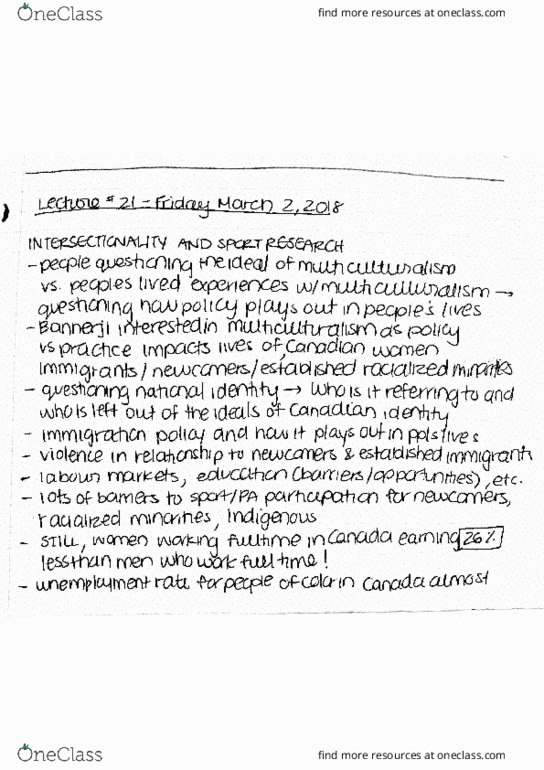 OneClass
find more resources at oneclass.com
Lecture # 21 - Friday March 2, 2018
INTERSECTIONALITY AND SPORT RESEARCH
- people questioning the ideal of multiculturalism
vs. peoples lived experiences w/ multiculturalism →
questioning how policy plays out in people's lives
- Bannerji interested in multiculturalism as policy
vs practice impacts lives of Canadian women
immigrants / newcomers / established racialized minorities
- questioning national identity → who is it referring to and
who is left out of the ideals of Canadian identity
- immigration policy and how it plays out in ppls lives
- violence in relationship to newcomers & established immigrants
- labour markets, education (barriers/opportunities), etc.
- lots of barriers to sport/PA participation for newcomers,
racialized minorities, Indigenous
- STILL, women working fulltime in Canada earning 26%
less than men who work full time!
- unemployment rate for people of color in Canada almost
OneClass
find more resources at oneclass.com